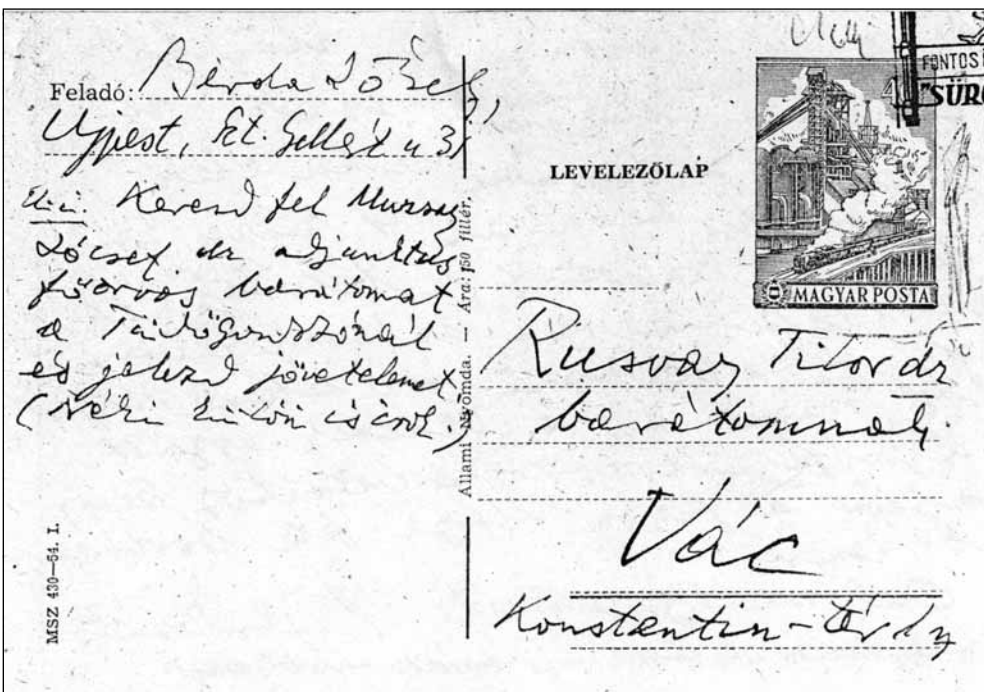 Feladó: Berda József
Ujpest, Szt. Gellért u 31
U.i. Keresd fel
József dr adjunktus
főorvos barátomat
a Tüdőgondozónál
és jelezd jövetelemet
(Néki külön is írok.)
MSZ 430—54. I.
Állami Nyomda. — Ára: 50 fillér.
LEVELEZŐLAP
FONTOS
SÜRG
MAGYAR POSTA
Rusvay Tibor dr
barátomnak
Vác
Konstantin-tér